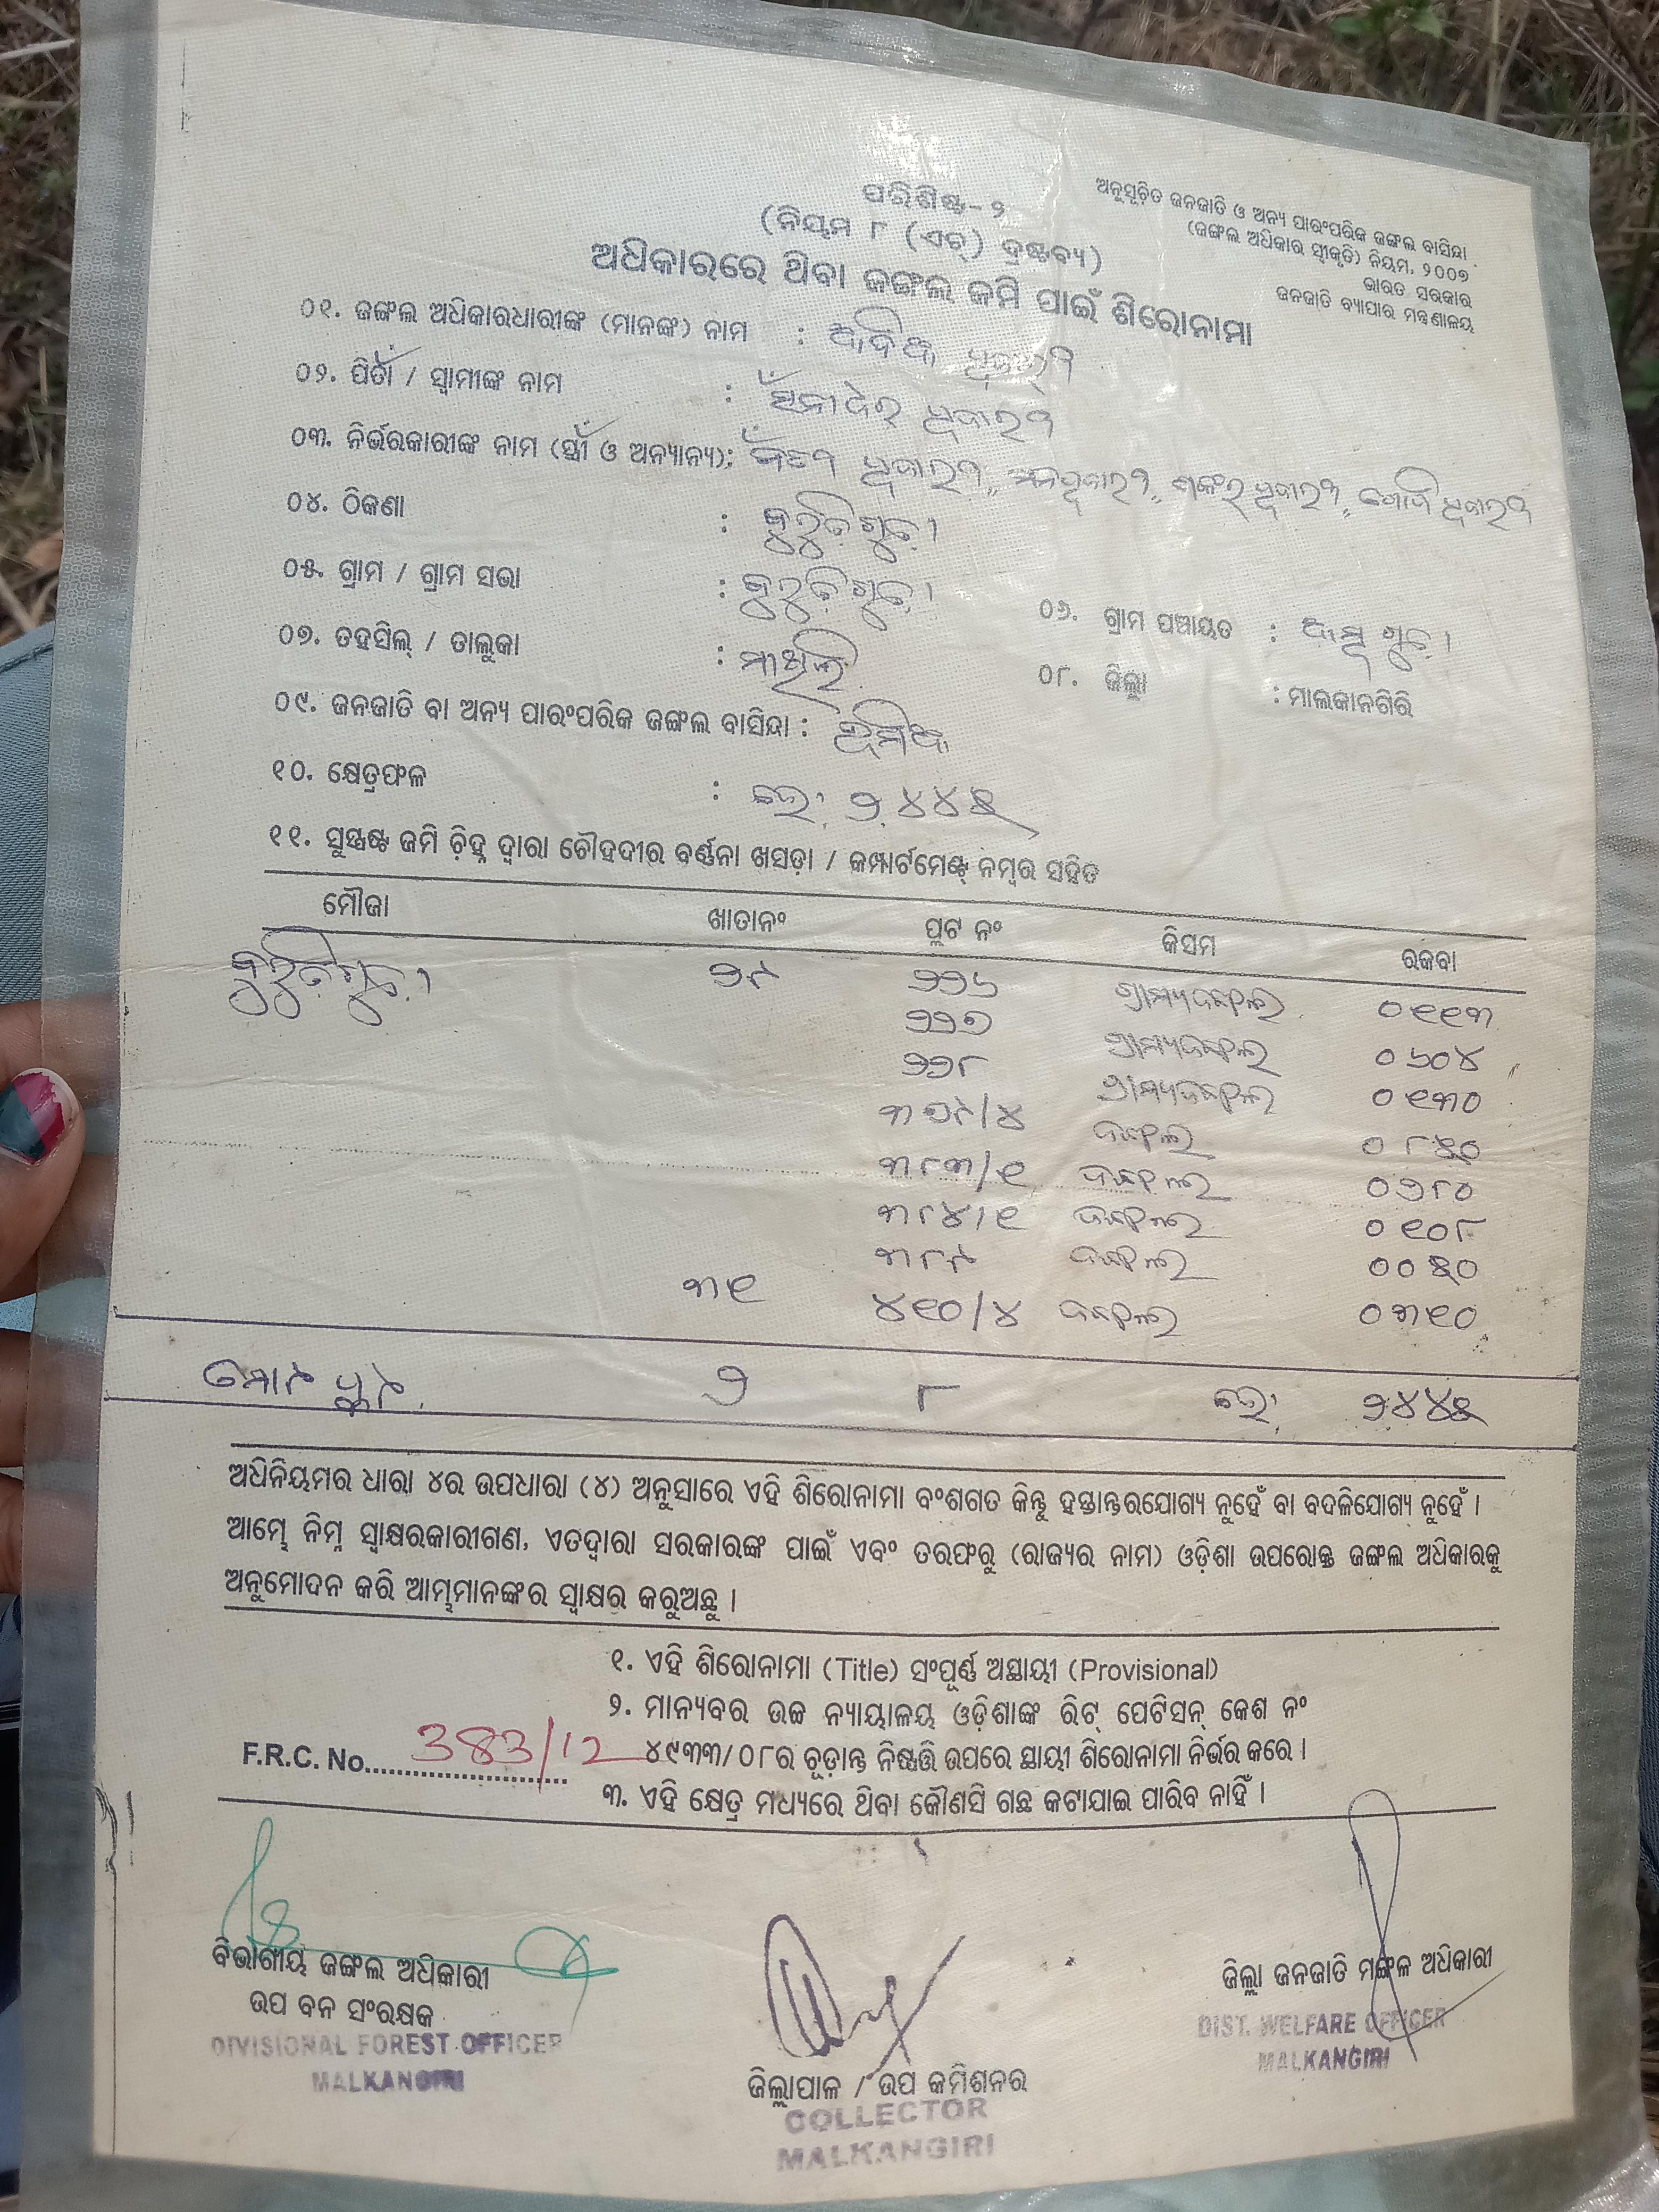 ଅନୁସୂଚିତ ଜନଜାତି ଓ ଅନ୍ୟ ପାରଂପରିକ ଜଙ୍ଗଲ ବାସିନ୍ଦା
(ଜଙ୍ଗଲ ଅଧିକାର ସ୍ୱୀକୃତି) ନିୟମ, ୨୦୦୭
ଭାରତ ସରକାର
ଜନଜାତି ବ୍ୟାପାର ମନ୍ତ୍ରଣାଳୟ
ପରିଶିଷ୍ଟ-୨
(ନିୟମ ୮ (ଏଚ୍) ଦ୍ରଷ୍ଟବ୍ୟ)
ଅଧିକାରରେ ଥିବା ଜଙ୍ଗଲ ଜମି ପାଇଁ ଶିରୋନାମା
୦୧. ଜଙ୍ଗଲ ଅଧିକାରଧାରୀଙ୍କ (ମାନଙ୍କ) ନାମ :
୦୨. ପିତା / ସ୍ୱାମୀଙ୍କ ନାମ :
୦୩. ନିର୍ଭରକାରୀଙ୍କ ନାମ (ସ୍ତ୍ରୀ ଓ ଅନ୍ୟାନ୍ୟ):
୦୪. ଠିକଣା :
୦୫. ଗ୍ରାମ / ଗ୍ରାମ ସଭା :
୦୬. ଗ୍ରାମ ପଞ୍ଚାୟତ :
୦୭. ତହସିଲ୍ / ତାଲୁକା :
୦୮. ଜିଲ୍ଲା : ମାଲକାନଗିରି
୦୯. ଜନଜାତି ବା ଅନ୍ୟ ପାରଂପରିକ ଜଙ୍ଗଲ ବାସିନ୍ଦା :
୧୦. କ୍ଷେତ୍ରଫଳ : ୨.୪୪୫
୧୧. ସୁସ୍ପଷ୍ଟ ଜମି ଚି଼ହ୍ନ ଦ୍ୱାରା ଚୌହଦୀର ବର୍ଣ୍ଣନା ଖସଡ଼ା / କମ୍ପାର୍ଟମେଣ୍ଟ୍ ନମ୍ବର ସହିତ
ମୌଜା ଖାତାନଂ ପ୍ଲଟ ନଂ କିସମ ରକବା
୨୯ ୨୨୬ ଗ୍ରାମ୍ୟଜଙ୍ଗଲ ୦୧୧୩
୨୨୭ ଗ୍ରାମ୍ୟଜଙ୍ଗଲ ୦୬୦୪
୨୨୮ ଗ୍ରାମ୍ୟଜଙ୍ଗଲ ୦୧୩୦
ଜଙ୍ଗଲ ୦୮୫୦
୩୮୩/୧ ଜଙ୍ଗଲ ୦୨୮୦
୩୮୪/୧ ଜଙ୍ଗଲ ୦୧୦୮
୩୮୯ ଜଙ୍ଗଲ ୦୦୫୦
୩୧ ୪୧୦/୪ ଜଙ୍ଗଲ ୦୩୧୦
୨ ୮ ୨୪୪୫
ଅଧିନିୟମର ଧାରା ୪ର ଉପଧାରା (୪) ଅନୁସାରେ ଏହି ଶିରୋନାମା ବଂଶଗତ କିନ୍ତୁ ହସ୍ତାନ୍ତରଯୋଗ୍ୟ ନୁହେଁ ବା ବଦଳିଯୋଗ୍ୟ ନୁହେଁ ।
ଆମ୍ଭେ ନିମ୍ନ ସ୍ୱାକ୍ଷରକାରୀଗଣ, ଏତଦ୍ୱାରା ସରକାରଙ୍କ ପାଇଁ ଏବଂ ତରଫରୁ (ରାଜ୍ୟର ନାମ) ଓଡ଼ିଶା ଉପରୋକ୍ତ ଜଙ୍ଗଲ ଅଧିକାରକୁ
ଅନୁମୋଦନ କରି ଆମ୍ଭମାନଙ୍କର ସ୍ୱାକ୍ଷର କରୁଅଛୁ ।
୧. ଏହି ଶିରୋନାମା (Title) ସଂପୂର୍ଣ୍ଣ ଅସ୍ଥାୟୀ (Provisional)
୨. ମାନ୍ୟବର ଉଚ୍ଚ ନ୍ୟାୟାଳୟ ଓଡ଼ିଶାଙ୍କ ରିଟ୍ ପେଟିସନ୍ କେଶ ନଂ
୪୯୩୩/୦୮ର ଚୂଡ଼ାନ୍ତ ନିଷ୍ପତ୍ତି ଉପରେ ସ୍ଥାୟୀ ଶିରୋନାମା ନିର୍ଭର କରେ ।
F.R.C. No. 383/12
୩. ଏହି କ୍ଷେତ୍ର ମଧ୍ୟରେ ଥିବା କୌଣସି ଗଛ କଟାଯାଇ ପାରିବ ନାହିଁ ।
ବିଭାଗୀୟ ଜଙ୍ଗଲ ଅଧିକାରୀ
ଉପ ବନ ସଂରକ୍ଷକ
DIVISIONAL FOREST OFFICER
MALKANGIRI
ଜିଲ୍ଲାପାଳ / ଉପ କମିଶନର
COLLECTOR
MALKANGIRI
ଜିଲ୍ଲା ଜନଜାତି ମଙ୍ଗଳ ଅଧିକାରୀ
DIST. WELFARE OFFICER
MALKANGIRI